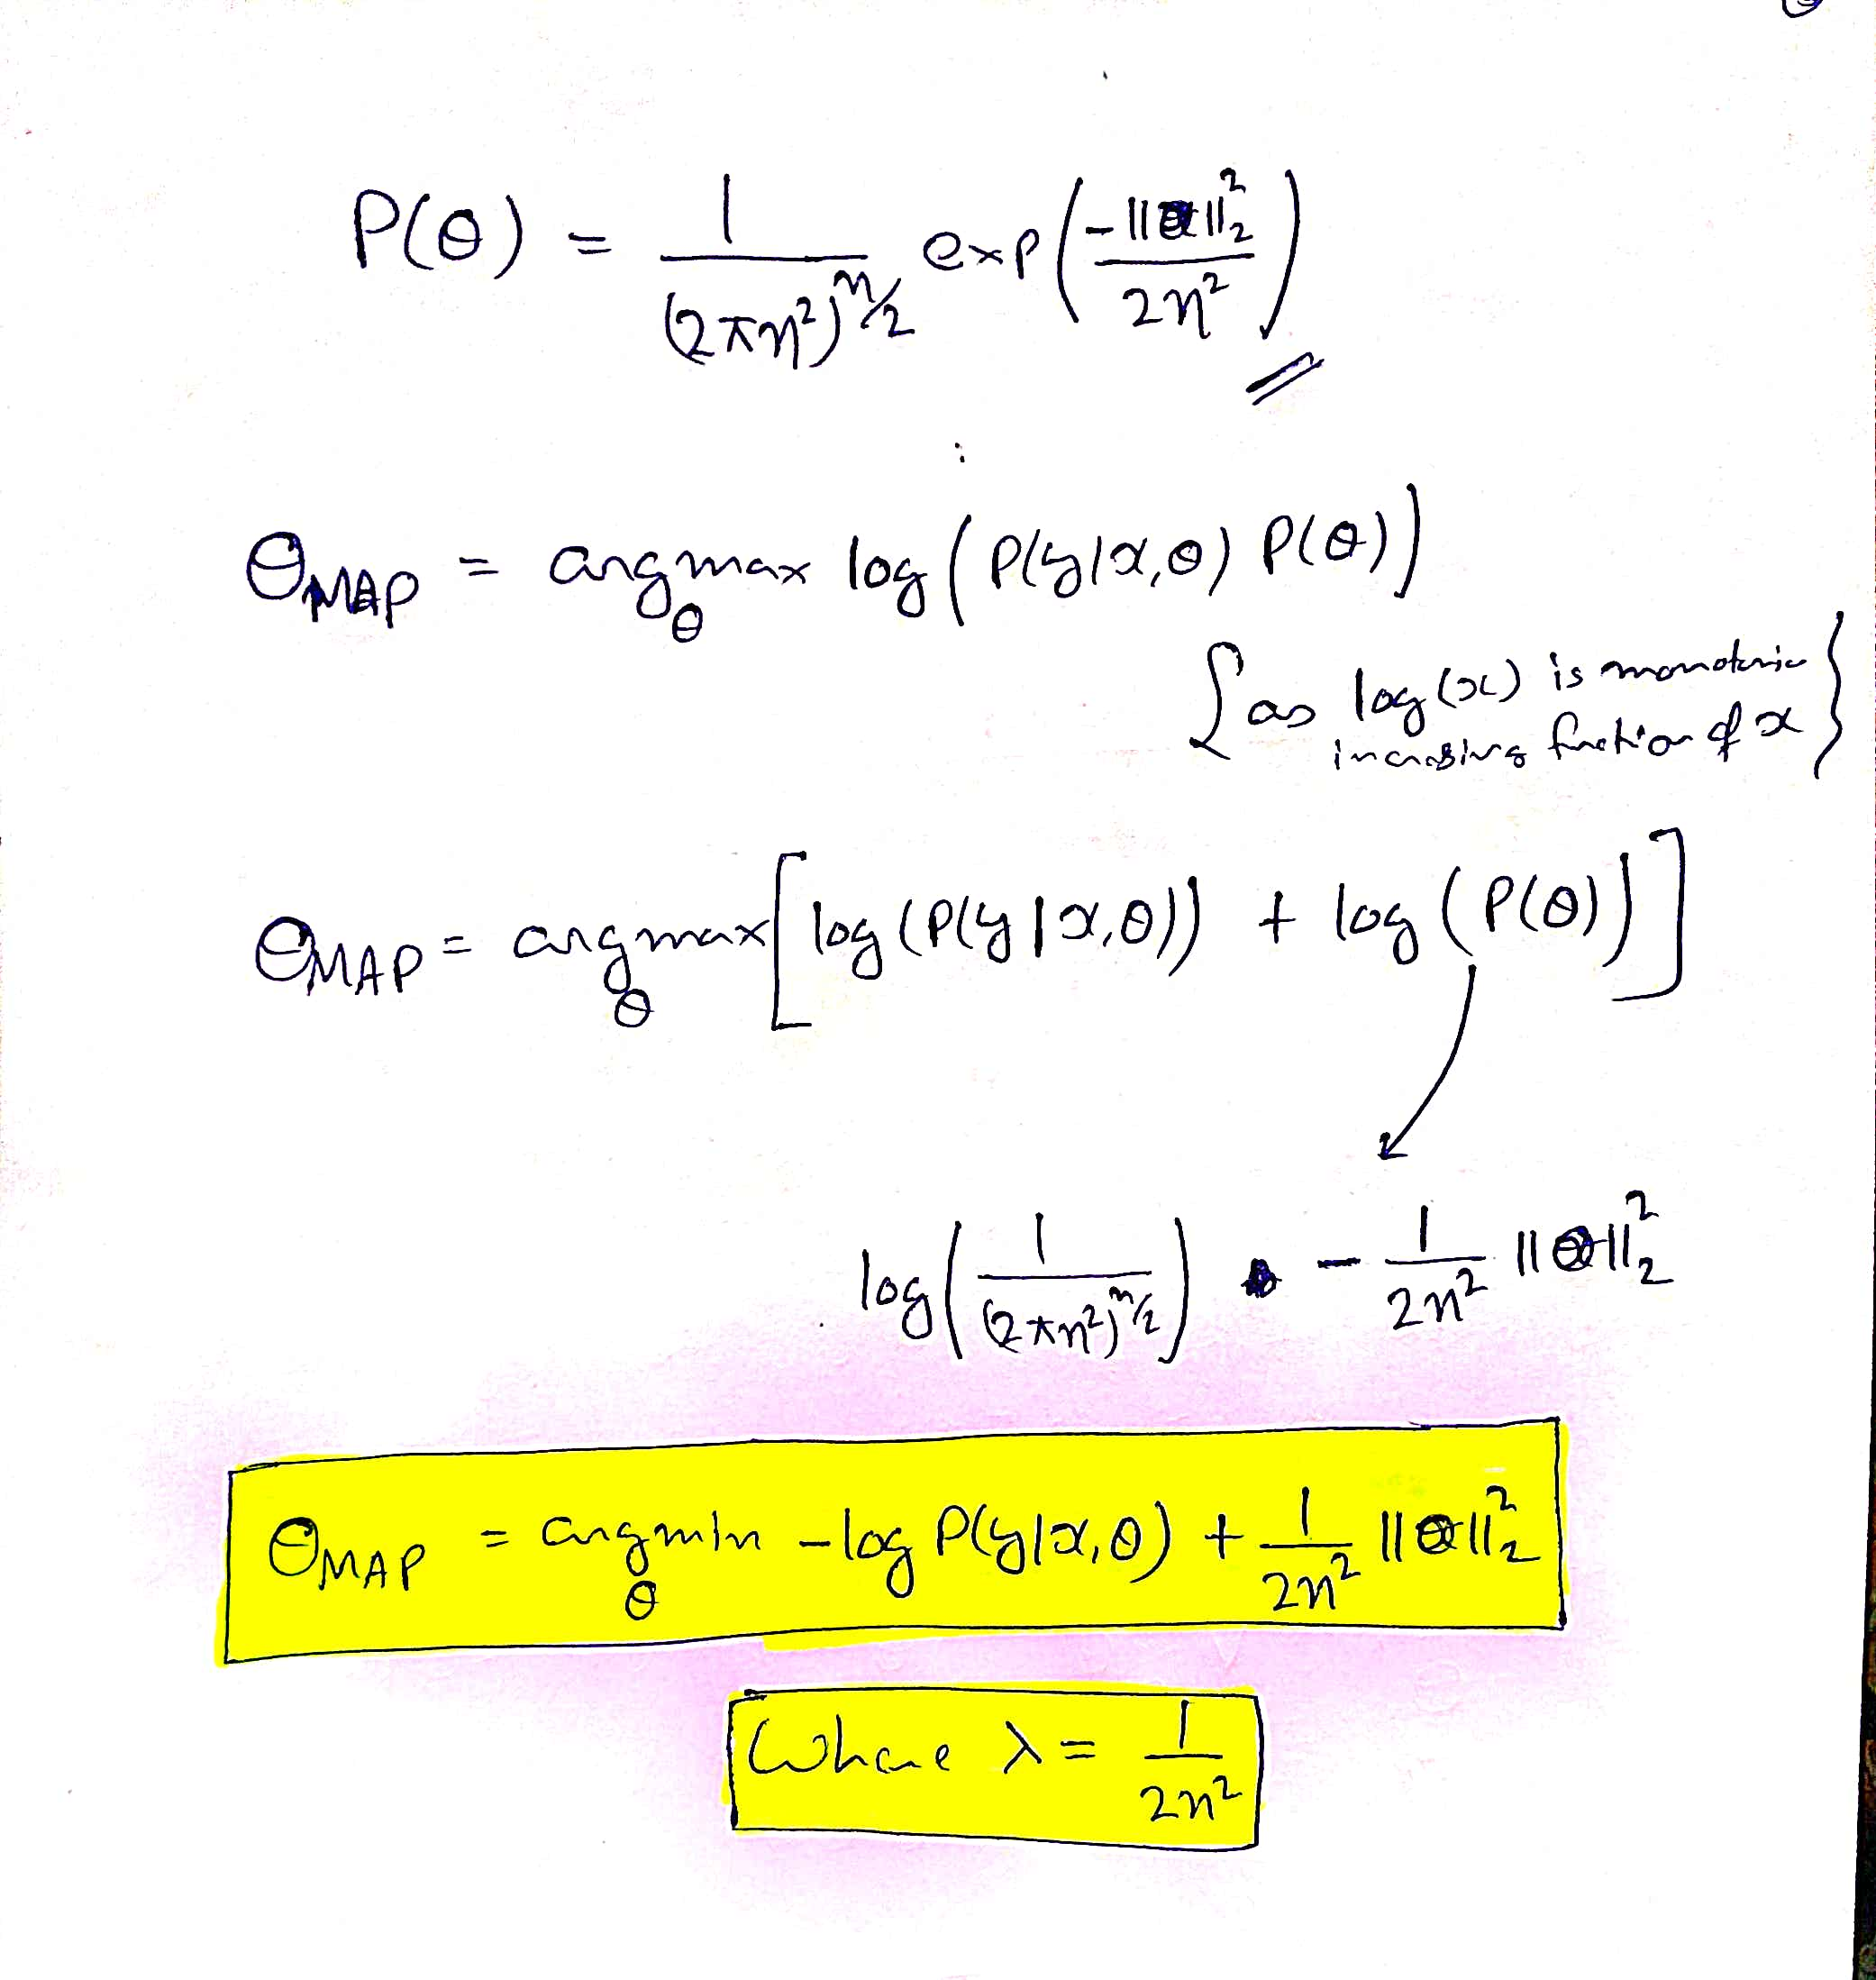 P(θ) = 1/(2πη²)^(n/2) exp(-||θ||₂²/2η²)
θ_MAP = argmax_θ log(P(y|x,θ) P(θ))
{as log(x) is monotonic
increasing function of x}
θ_MAP = argmax_θ [log(P(y|x,θ)) + log(P(θ))]
log(1/(2πη²)^(n/2)) - 1/2η² ||θ||₂²
θ_MAP = argmin_θ -log P(y|x,θ) + 1/2η² ||θ||₂²
Where λ = 1/2η²